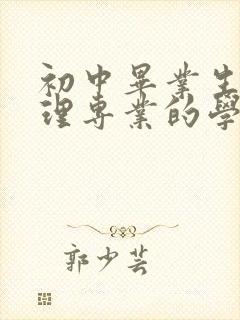 初中畢業生
理專業的學
郭少芸